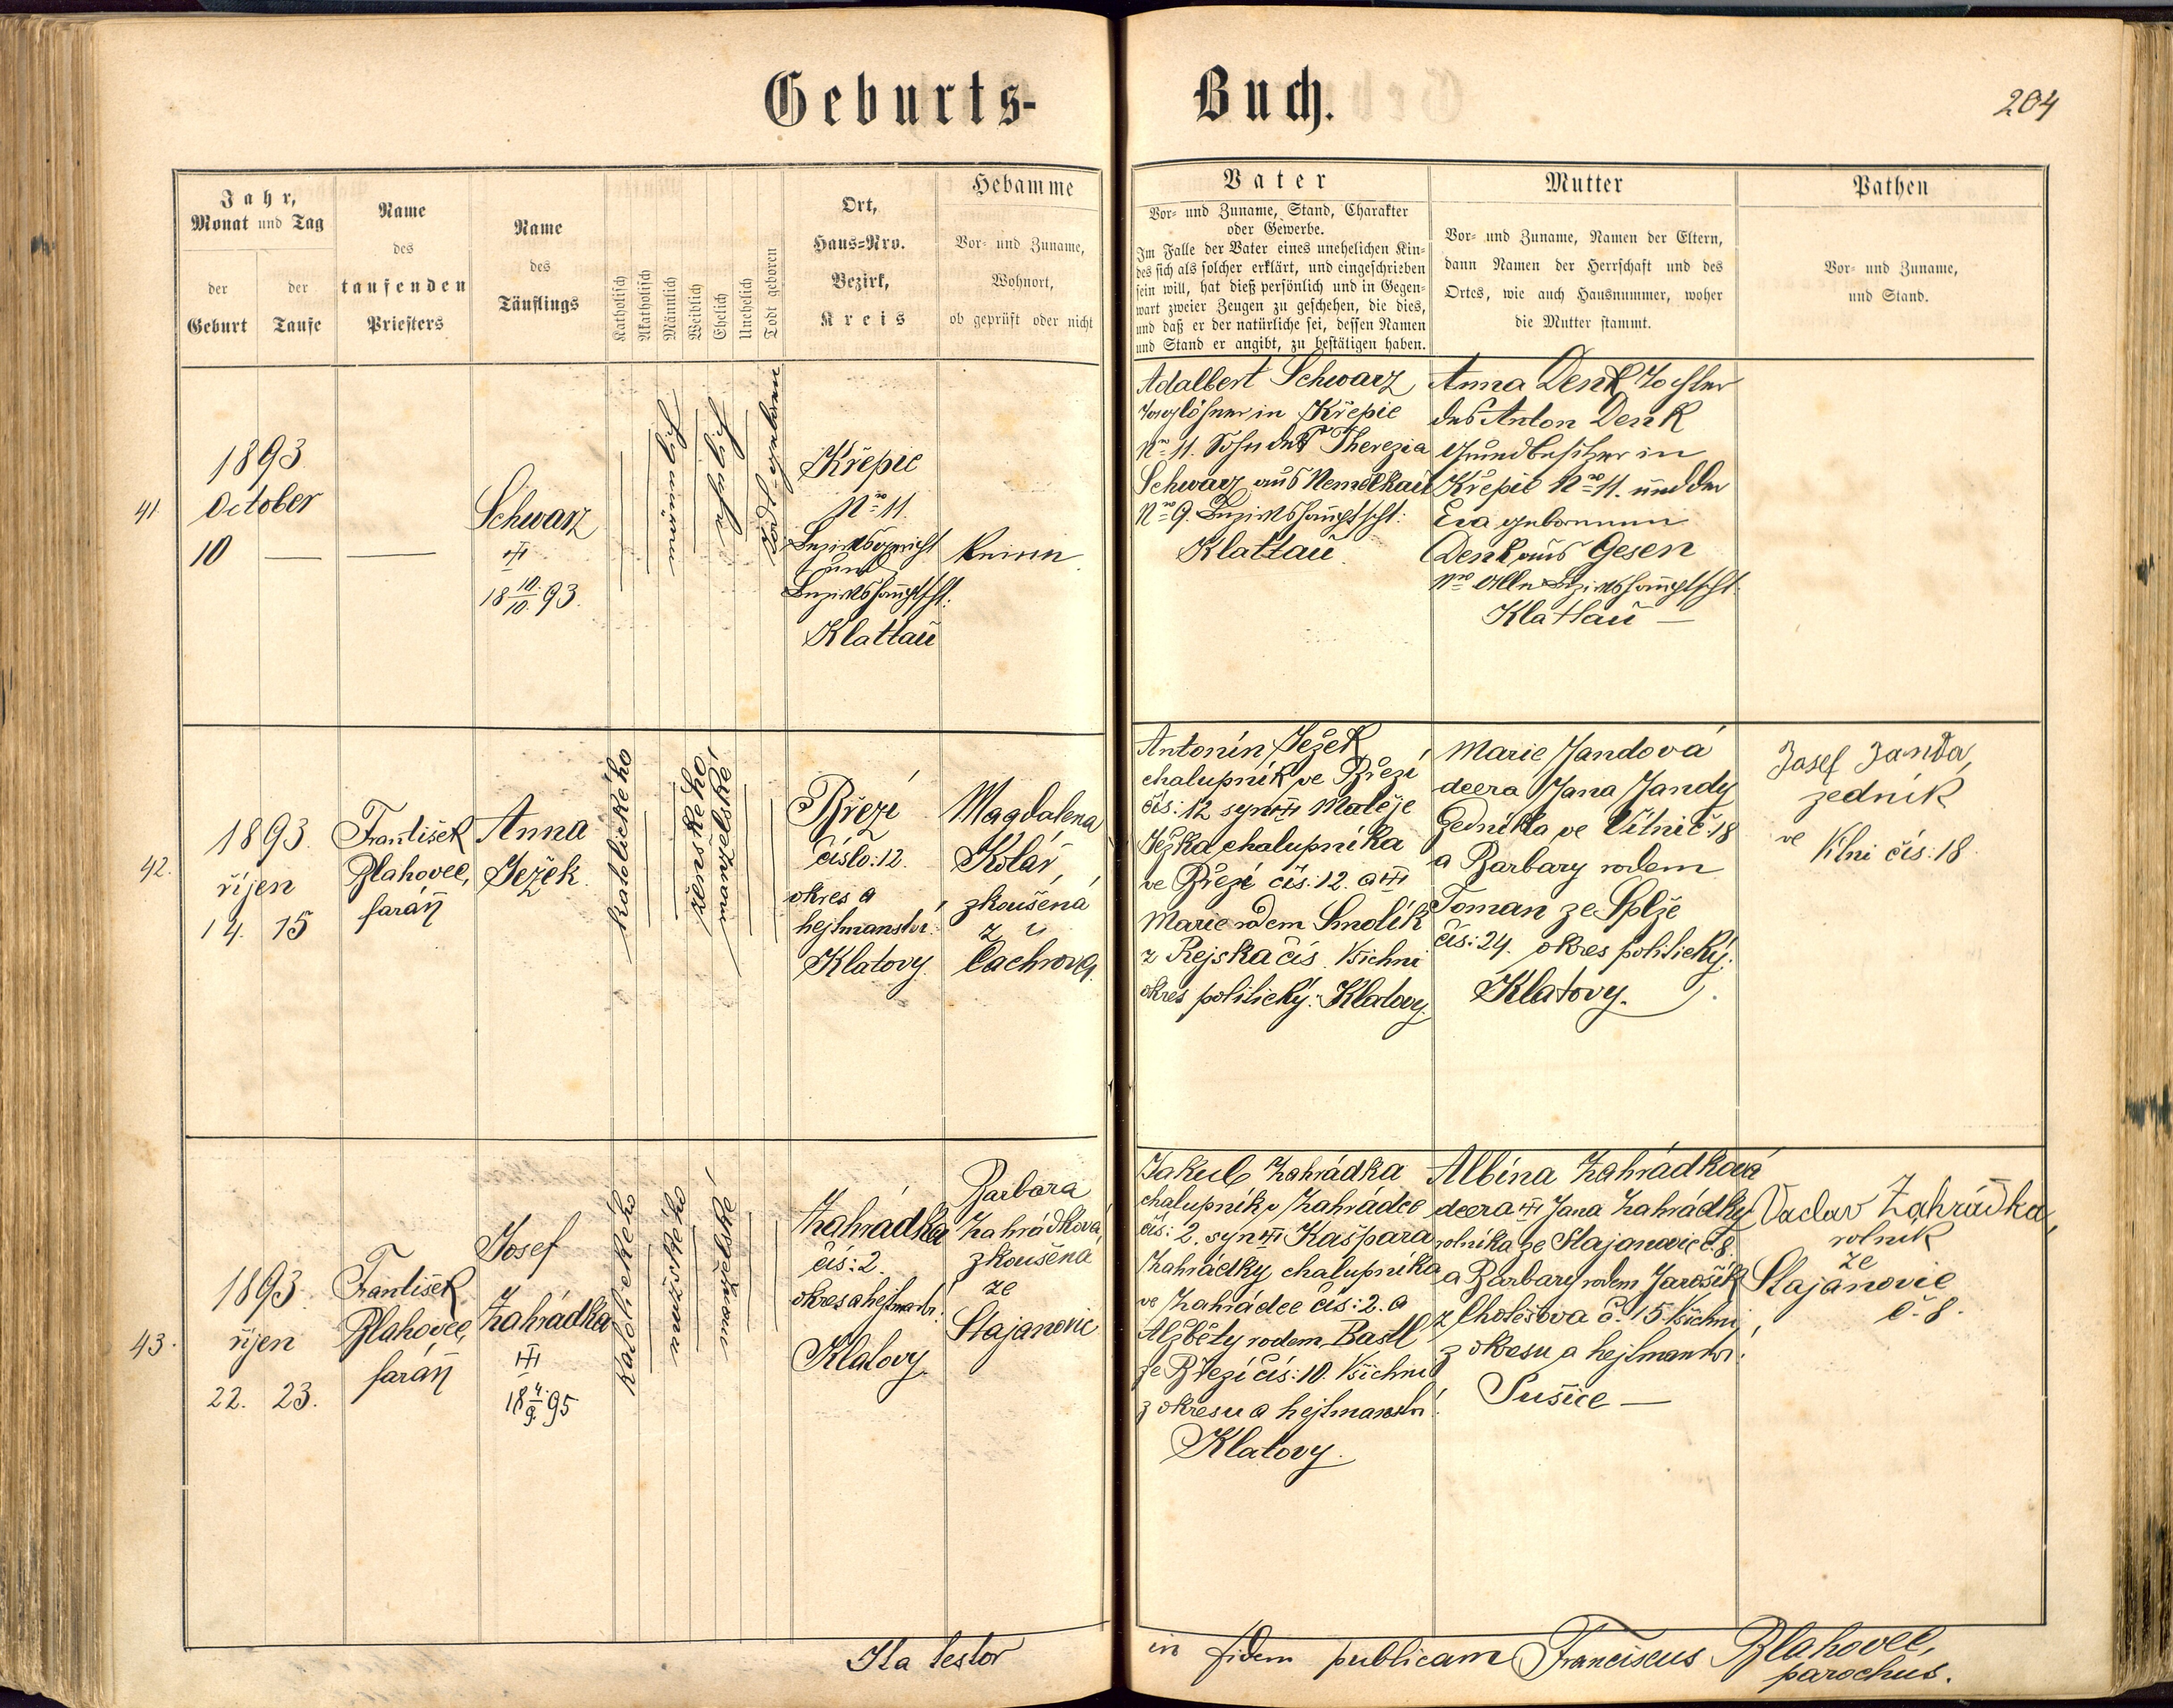 Geburts-
Buch.
204
Jahr,
Monat und Tag
der
Geburt
der
Taufe
Name
des
taufenden
Priesters
Name
des
Täuflings
Katholisch
Akatholisch
Männlich
Weiblich
Ehelich
Unehelich
Todt geboren
Ort,
Haus=Nro.
Bezirk,
Kreis
Hebamme
Vor= und Zuname,
Wohnort,
ob geprüft oder nicht
Vater
Vor= und Zuname, Stand, Charakter
oder Gewerbe.
Im Falle der Vater eines unehelichen Kin=
des sich als solcher erklärt, und eingeschrieben
sein will, hat dieß persönlich und in Gegen=
wart zweier Zeugen zu geschehen, die dies,
und daß er der natürliche sei, dessen Namen
und Stand er angibt, zu bestätigen haben.
Mutter
Vor= und Zuname, Namen der Eltern,
dann Namen der Herrschaft und des
Ortes, wie auch Hausnummer, woher
die Mutter stammt.
Pathen
Vor= und Zuname,
und Stand.
41.
1893
October
10 —
—
Schwarz
18 10/10. 93.
männlich
eheliche
todt=geboren
Křepic
Nro 11.
Bezirksgericht
und
Bezirkshauptscht:
Klattau
keine
Adalbert Schwarz
Taglöhner in Křepic
Nro 11. Sohn der Therezia
Schwarz aus Nemelkau
Nro 9. Bezirkshauptscht:
Klattau
Anna Denk Tochter
des Anton Denk
Grundbesitzer in
Křepic Nro 11. und der
Eva gebornnen
Denk aus Gesen
Nro Alle Bezirkshauptscht:
Klattau —
42.
1893.
říjen
14. 15
František
Blahovec,
farář
Anna
Ježek
katolického
ženského
manželské
Březí
číslo: 12.
okres a
hejtmanství:
Klatovy.
Magdalena
Kolář,
zkoušená
z
Čachrova.
Antonín Ježek
chalupník ve Březí
čís: 12 syn Matěje
Ježka chalupníka
ve Březí čís: 12. a
Marie rodem Smolík
z Rejska čís. Všichni
okres politický: Klatovy.
Marie Jandová
dcera Jana Jandy
zedníka ve Vílní č: 18
a Barbary rodem
Toman ze Splže
čís: 24. okres politický:
Klatovy.
Josef Janda,
zedník
ve Vilni čís: 18
43.
1893.
říjen
22. 23.
František
Blahovec,
farář
Josef
Zahrádka
18 4/9. 95
katolického
mužského
manželské
Zahrádka
čís: 2.
okres a hejtmanstv:
Klatovy.
Barbara
Zahrádková,
zkoušená
ze
Stajanovic
Jakub Zahrádka
chalupník v Zahrádce
čís: 2. syn Kašpara
Zahrádky chalupníka
ve Zahrádce čís: 2. a
Alžběty rodem Bastl
ze Březí čís: 10. Všichni
z okresu a hejtmanství:
Klatovy.
Albína Zahrádková
dcera Jana Zahrádky
rolníka ze Stajanovic č. 8.
a Barbary rodem Jarošík
z Chotěšova č. 15. Všichni
z okresu a hejtmanství:
Sušice —
Vaclav Zahrádka,
rolník
ze
Stajanovic
č. 8.
Ita testor
in fidem publicam Franciscus Blahovec,
parochus.